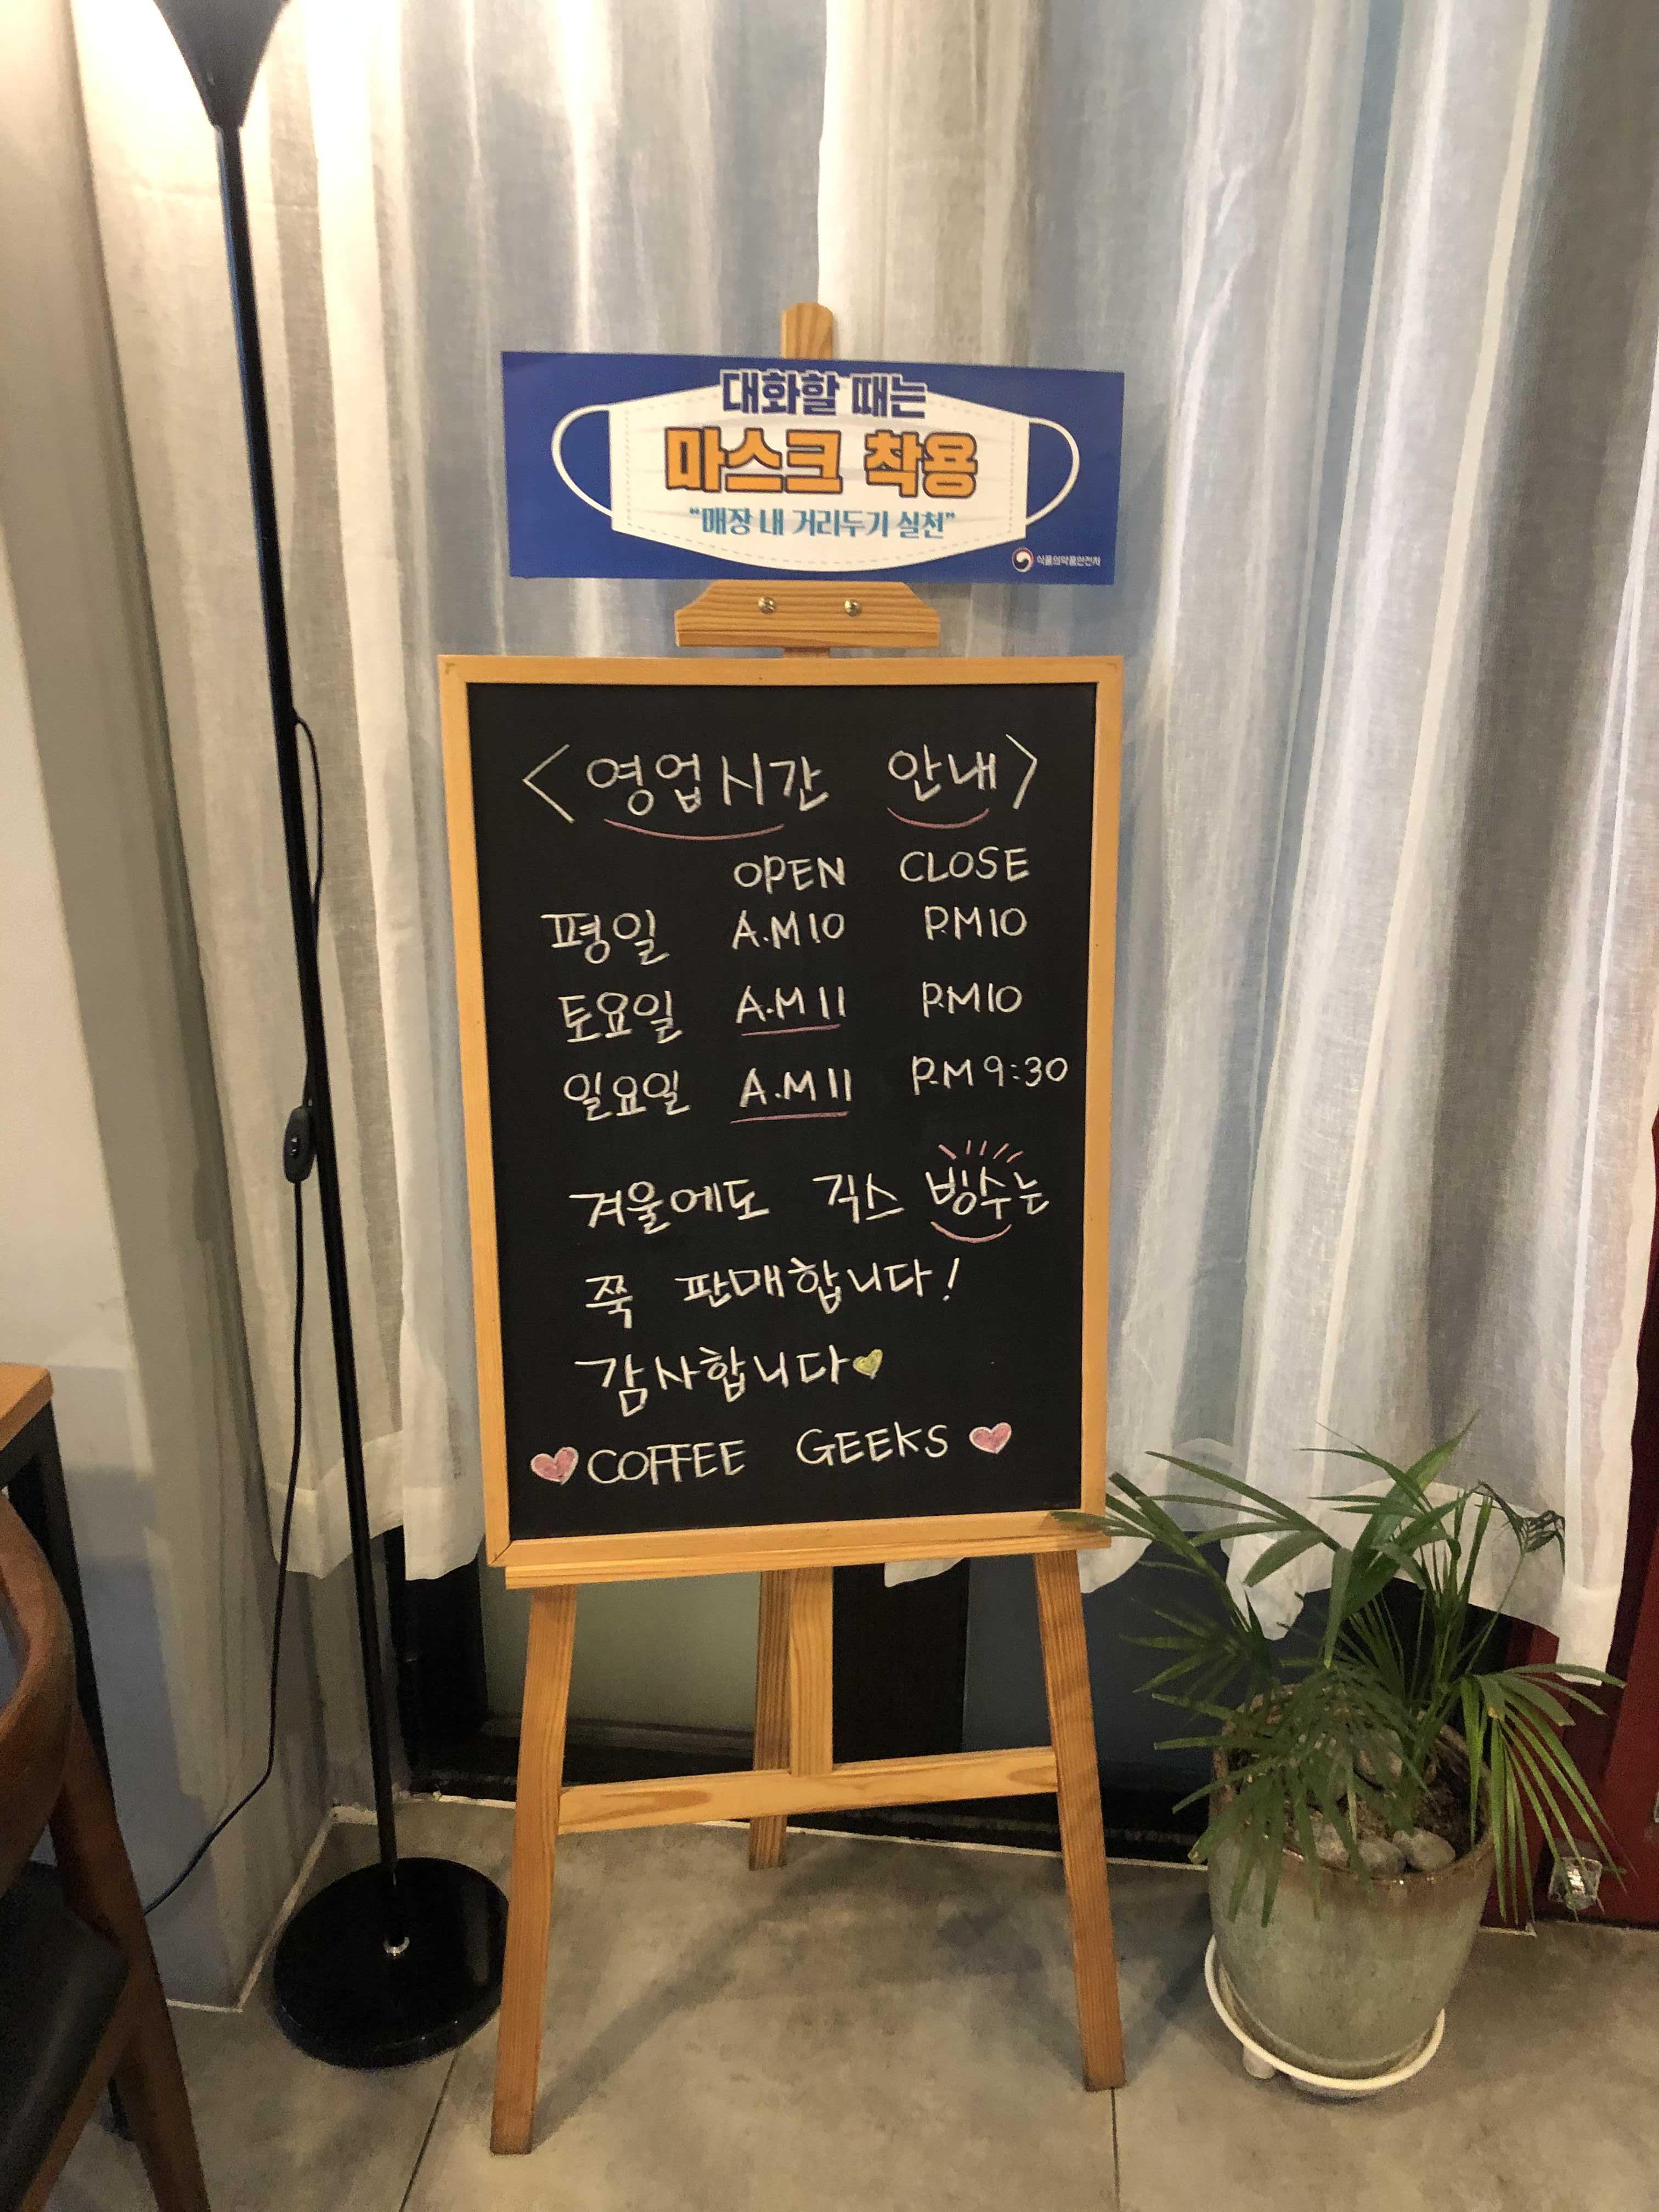 대화할 때는
마스크 착용
“매장 내 거리두기 실천”
식품의약품안전처
<영업시간 안내>
OPEN CLOSE
평일 A.M10 P.M10
토요일 A.M 11 P.M10
일요일 A.M 11 P.M 9:30
겨울에도 긱스 빙수는
쭉 판매합니다!
감사합니다
COFFEE GEEKS